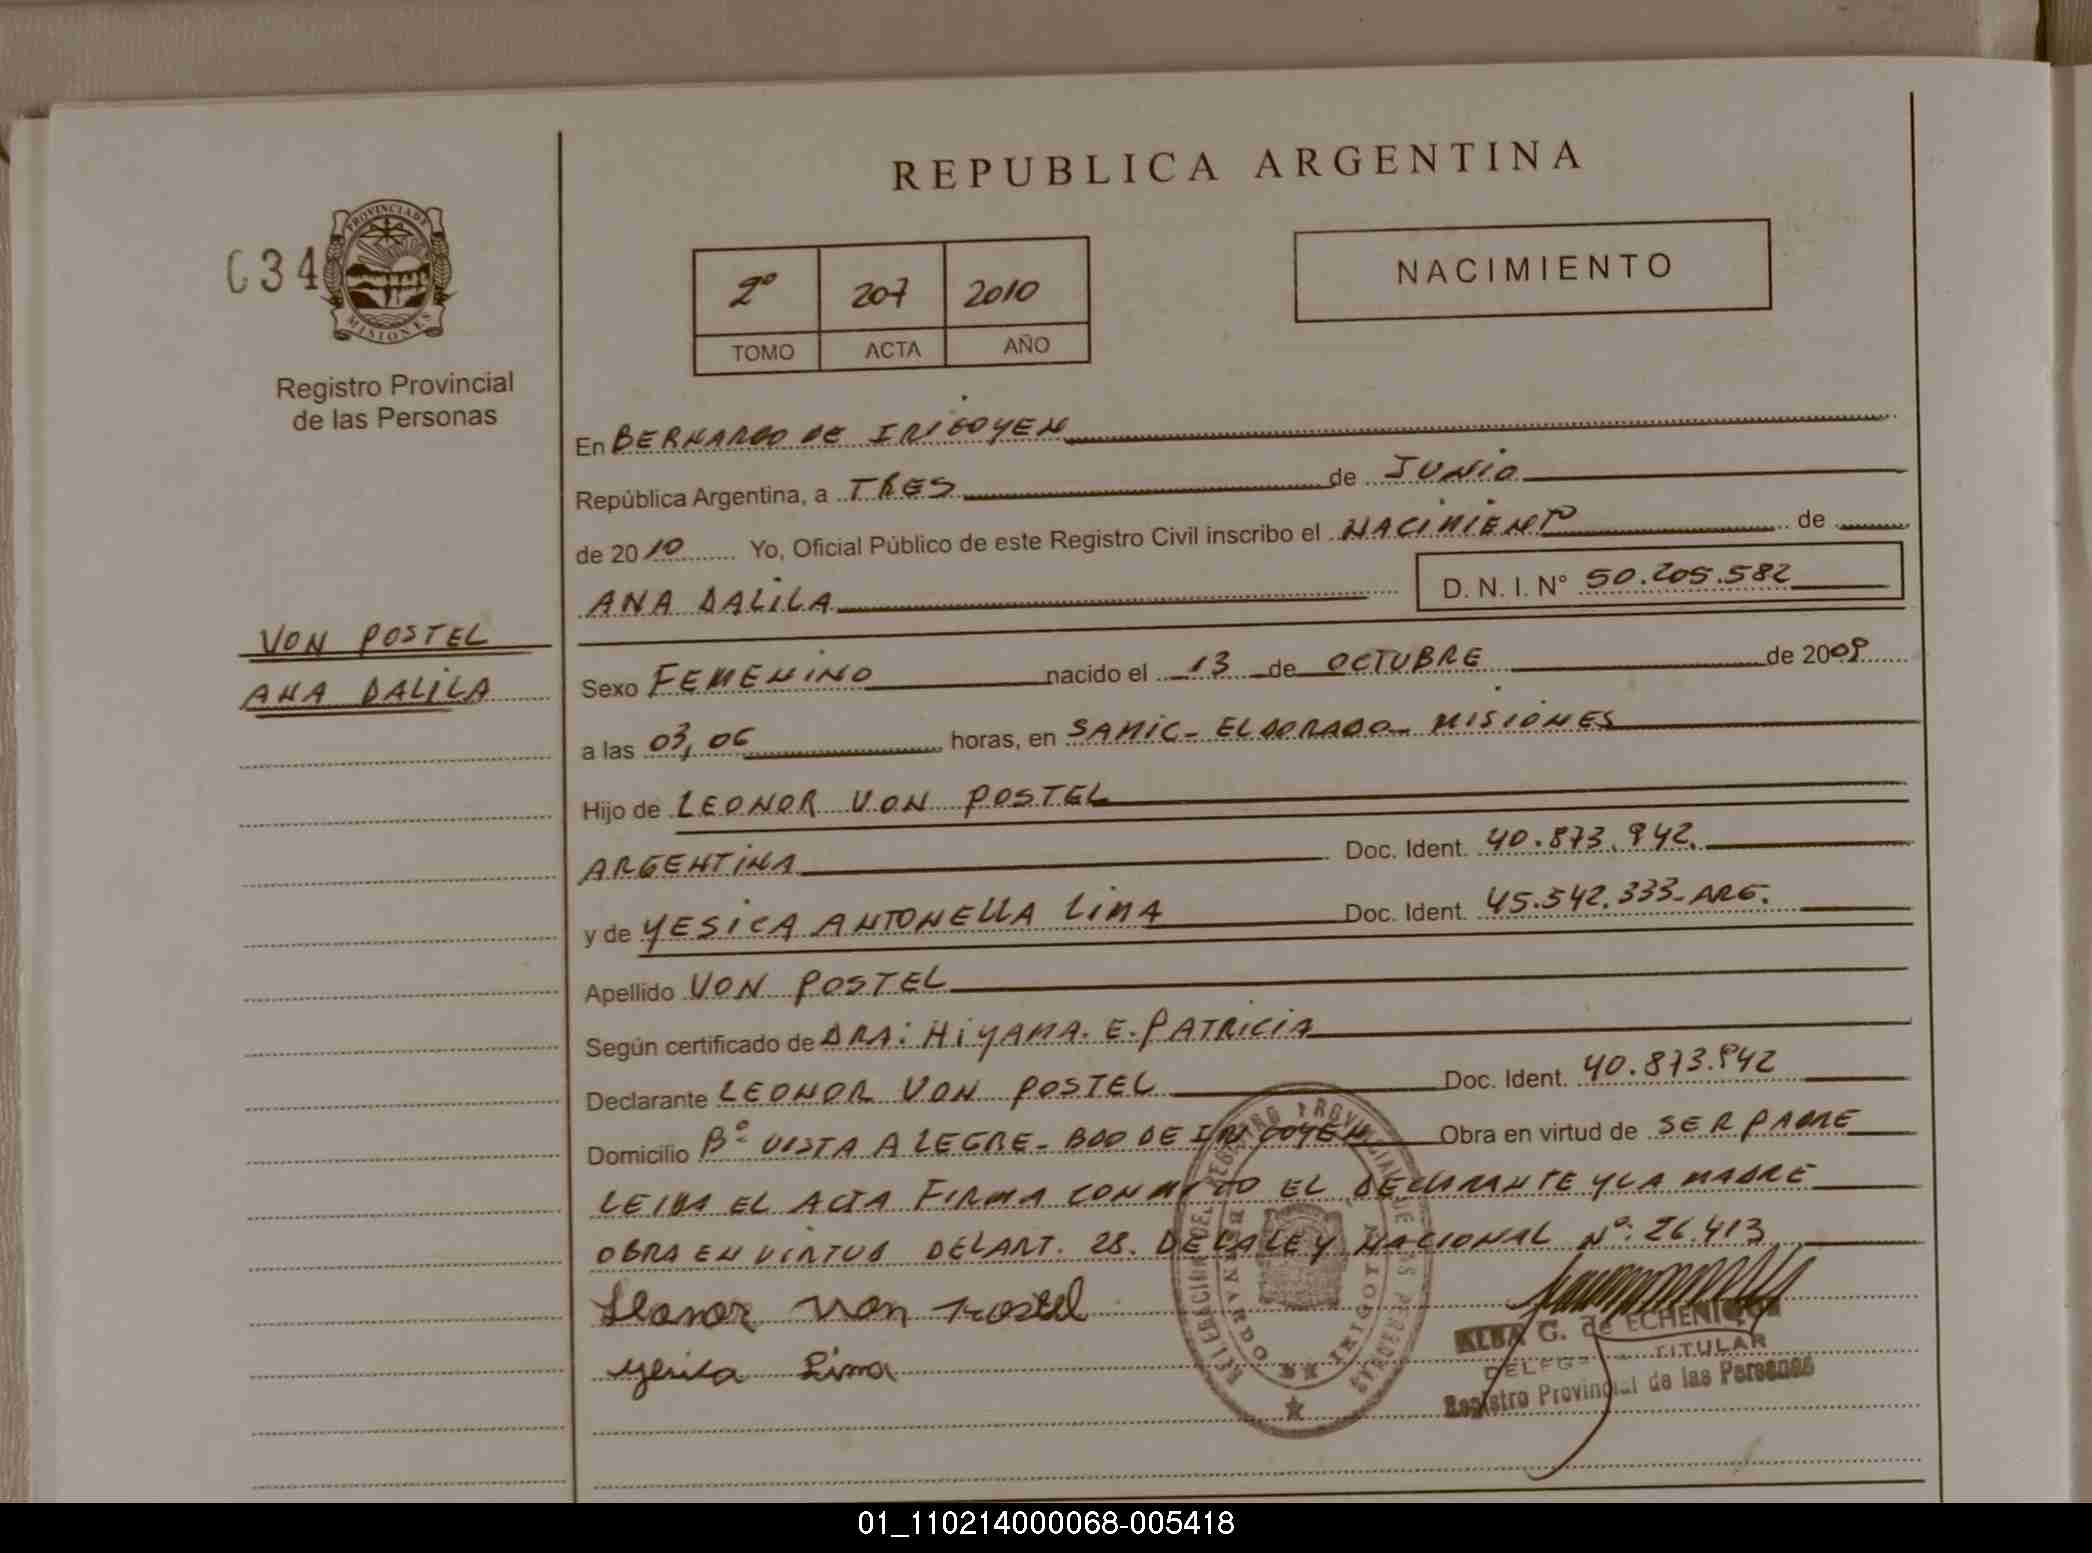 REPUBLICA ARGENTINA
034
PROVINCIA DE
MISIONES
Registro Provincial
de las Personas
2º 207 2010
TOMO ACTA AÑO
NACIMIENTO
En BERNARDO DE IRIGOYEN
República Argentina, a TRES de JUNIO
de 2010 Yo, Oficial Público de este Registro Civil inscribo el NACIMIENTO de
ANA DALILA D. N. I. Nº 50.205.582
VON POSTEL
ANA DALILA
Sexo FEMENINO nacido el 13 de OCTUBRE de 2009
a las 03,06 horas, en SAMIC - ELDORADO - MISIONES
Hijo de LEONOR VON POSTEL
ARGENTINA Doc. Ident. 40.873.942.
y de YESICA ANTONELLA LIMA Doc. Ident. 45.342.333-ARG.
Apellido VON POSTEL
Según certificado de DRA: HIYAMA. E. PATRICIA
Declarante LEONOR VON POSTEL Doc. Ident. 40.873.942
Domicilio Bº VISTA ALEGRE - BDO DE IRIGOYEN Obra en virtud de SER PADRE
LEIDA EL ACTA FIRMA CONMIGO EL DECLARANTE Y LA MADRE
OBRA EN VIRTUD DEL ART. 28. DE LA LEY NACIONAL Nº: 26.413
Leonor Von Postel
Yesica Lima
ALBA G. de ECHENIQUE
TITULAR
Registro Provincial de las Personas
01_110214000068-005418